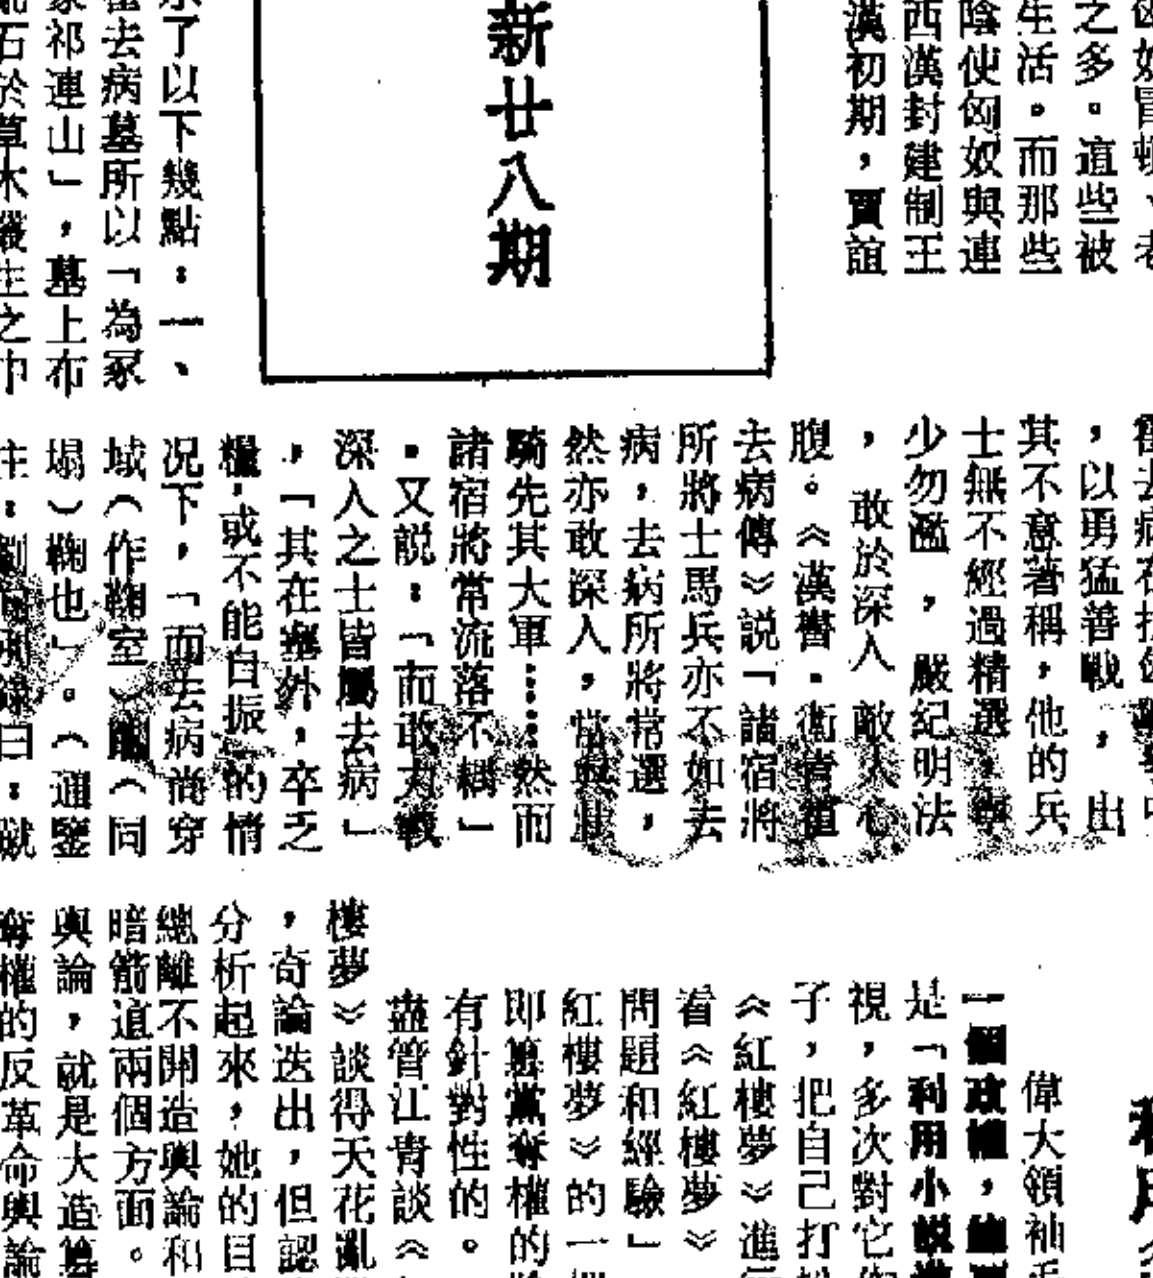 奴冒頓、老
之多。這些被
生活。而那些
陰使匈奴與連
西漢封建制王
漢初期，賈誼
新廿八期
了以下幾點：一、
去病墓所以「為冢
祁連山」，墓上布
石於草木叢生之中
霍去病在抗匈戰爭中
，以勇猛善戰，出
其不意著稱，他的兵
士無不經過精選，寧
少勿濫，嚴紀明法
，敢於深入敵人心
腹。《漢書·衛青霍
去病傳》説「諸宿將
所將士馬兵亦不如去
病，去病所將常選，
然亦敢深入，常與壯
騎先其大軍……然而
諸宿將常流落不耦」
。又説：「而敢力戰
深入之士皆屬去病」
，「其在塞外，卒乏
糧，或不能自振」的情
况下，「而去病尚穿
域（作鞠室）蹋（同
塌）鞠也」。（通鑒
注：劉向别錄曰：蹴
偉大領袖毛
一個政權，總要
是「利用小説進
視，多次對它作
子，把自己打扮
《紅樓夢》進行
看《紅樓夢》
問題和經驗」
紅樓夢》的一
即篡黨奪權的
有針對性的。
盡管江青談《
樓夢》談得天花亂
，奇論迭出，但認
分析起來，她的目
總離不開造輿論和
暗箭這兩個方面。
輿論，就是大造篡
奪權的反革命輿論